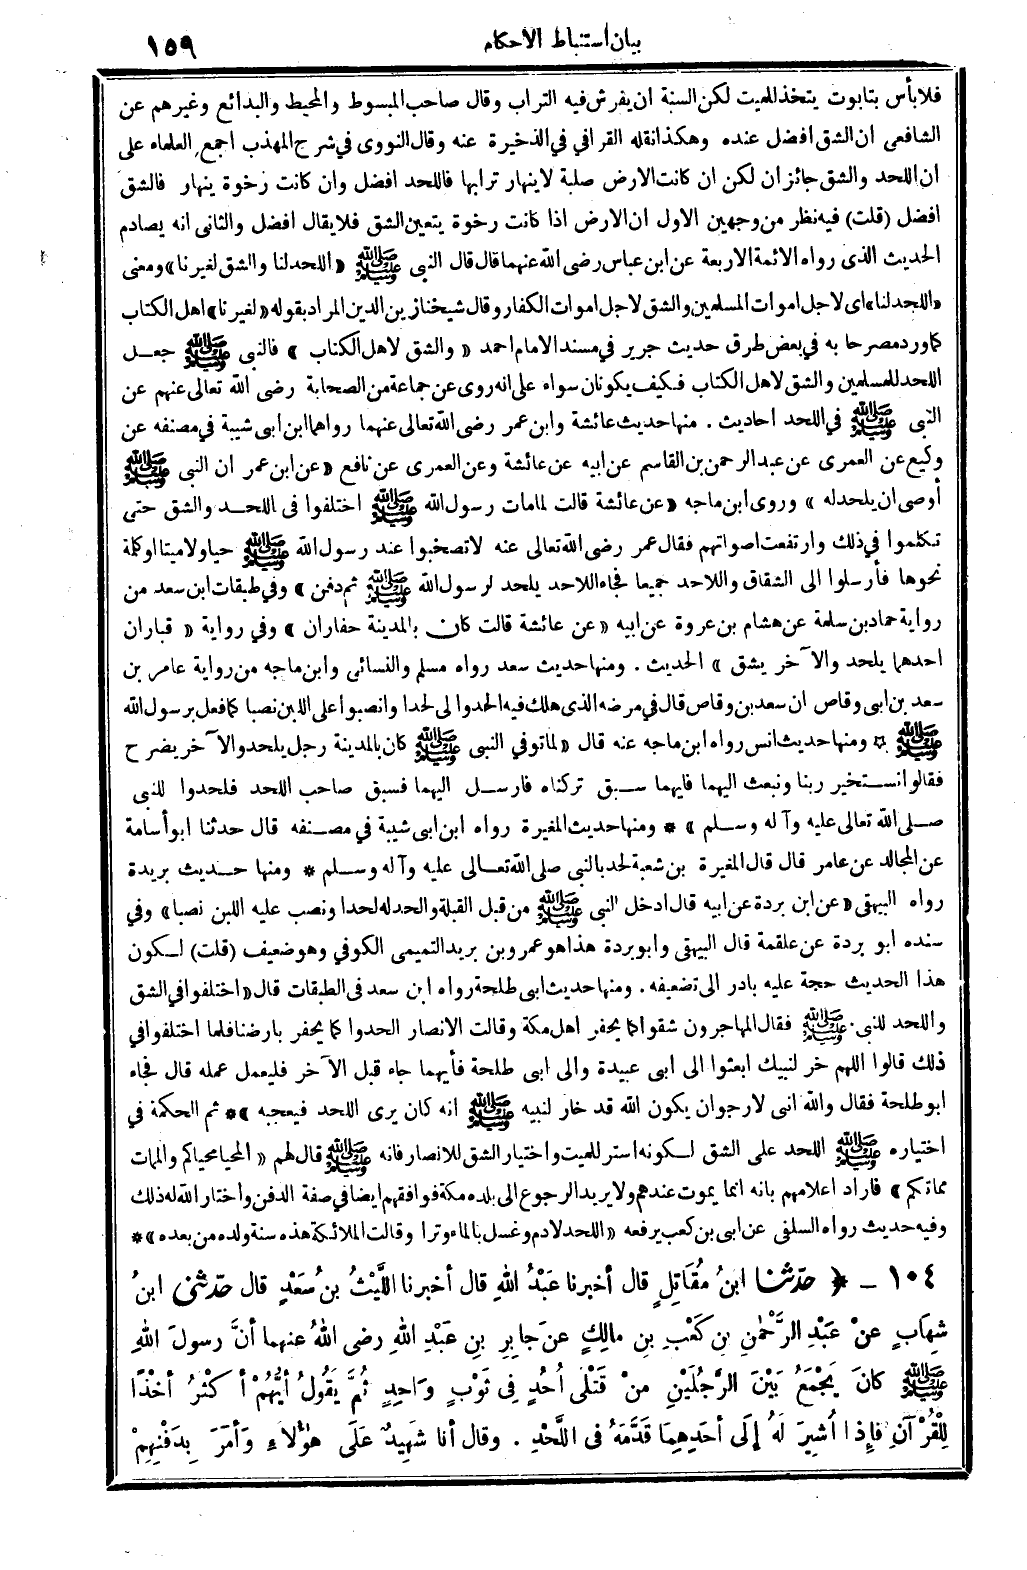 بيان استنباط الأحكام ١٥٩
فلا بأس بتابوت يتخذ للميت لكن السنة ان يفرش فيه التراب وقال صاحب المبسوط والمحيط والبدائع وغيرهم عن
الشافعى ان الشق افضل عنده وهكذا نقله القرافي في الذخيرة عنه وقال النووى في شرح المهذب اجمع العلماء على
ان اللحد والشق جائزان لكن ان كانت الارض صلبة لا ينهار ترابها فاللحد افضل وان كانت رخوة ينهار فالشق
افضل (قلت) فيه نظر من وجهين الاول ان الارض اذا كانت رخوة يتعين الشق فلا يقال افضل والثانى انه يصادم
الحديث الذى رواه الائمة الاربعة عن ابن عباس رضى الله عنهما قال قال النبى ﷺ «اللحد لنا والشق لغيرنا» ومعنى
«اللحد لنا» اى لاجل اموات المسلمين والشق لاجل اموات الكفار وقال شيخنا زين الدين المراد بقوله «لغيرنا» اهل الكتاب
كما ورد مصرحا به في بعض طرق حديث جرير في مسند الامام احمد «والشق لاهل الكتاب» فالنبى ﷺ جعل
اللحد للمسلمين والشق لاهل الكتاب فكيف يكونان سواء على انه روى عن جماعة من الصحابة رضى الله تعالى عنهم عن
النبى ﷺ في اللحد احاديث . منها حديث عائشة وابن عمر رضى الله تعالى عنهما رواهما ابن ابى شيبة في مصنفه عن
وكيع عن العمرى عن عبد الرحمن بن القاسم عن ابيه عن عائشة وعن العمرى عن نافع «عن ابن عمر ان النبى ﷺ
أوصى ان يلحد له» وروى ابن ماجه «عن عائشة قالت لما مات رسول الله ﷺ اختلفوا فى اللحد والشق حتى
تكلموا في ذلك وارتفعت اصواتهم فقال عمر رضى الله تعالى عنه لا تصخبوا عند رسول الله ﷺ حيا ولا ميتا او كلمة
نحوها فأرسلوا الى الشقاق واللاحد جميعا فجاء اللاحد يلحد لرسول الله ﷺ ثم دفن» وفي طبقات ابن سعد من
رواية حماد بن سلمة عن هشام بن عروة عن ابيه «عن عائشة قالت كان بالمدينة حفاران» وفي رواية «قباران
احدهما يلحد والآخر يشق» الحديث . ومنها حديث سعد رواه مسلم والنسائى وابن ماجه من رواية عامر بن
سعد بن ابى وقاص ان سعد بن وقاص قال في مرضه الذى هلك فيه الحدوا لى لحدا وانصبوا على اللبن نصبا كما فعل برسول الله
ﷺ * ومنها حديث انس رواه ابن ماجه عنه قال «لما توفي النبى ﷺ كان بالمدينة رجل يلحد والآخر يضرح
فقالوا نستخير ربنا ونبعث اليهما فايهما سبق تركناه فارسل اليهما فسبق صاحب اللحد فلحدوا للنبى
صلى الله تعالى عليه وآله وسلم» * ومنها حديث المغيرة رواه ابن ابى شيبة في مصنفه قال حدثنا ابو أسامة
عن المجالد عن عامر قال قال المغيرة بن شعبة لحد بالنبى صلى الله تعالى عليه وآله وسلم * ومنها حديث بريدة
رواه البيهقى «عن ابن بردة عن ابيه قال ادخل النبى ﷺ من قبل القبلة والحد له لحدا ونصب عليه اللبن نصبا» وفي
سنده ابو بردة عن علقمة قال البيهقى وابو بردة هذا هو عمرو بن بريد التميمى الكوفي وهو ضعيف (قلت) لكون
هذا الحديث حجة عليه بادر الى تضعيفه . ومنها حديث ابى طلحة رواه ابن سعد فى الطبقات قال «اختلفوا في الشق
واللحد للنبى ﷺ فقال المهاجرون شقوا كما يحفر اهل مكة وقالت الانصار الحدوا كما يحفر بارضنا فلما اختلفوا في
ذلك قالوا اللهم خر لنبيك ابعثوا الى ابى عبيدة والى ابى طلحة فأيهما جاء قبل الآخر فليعمل عمله قال فجاء
ابو طلحة فقال والله انى لارجو ان يكون الله قد خار لنبيه ﷺ انه كان يرى اللحد فيعجبه» * ثم الحكمة في
اختياره ﷺ اللحد على الشق لكونه استر للميت واختيار الشق للانصار فانه ﷺ قال لهم «المحيا محياكم والممات
مماتكم» فاراد اعلامهم بانه انما يموت عندهم ولا يريد الرجوع الى بلده مكة فوافقهم ايضا في صفة الدفن واختار الله له ذلك
وفيه حديث رواه السلفى عن ابى بن كعب يرفعه «اللحد لادم وغسل بالماء وترا وقالت الملائكة هذه سنة ولده من بعده» *
١٠٤ - ﴿ حدّثنا ابنُ مُقَاتِلٍ قال أخبرنا عَبْدُ اللهِ قال أخبرنا اللَّيْثُ بنُ سَعْدٍ قال حدّثنى ابنُ
شِهَابٍ عنْ عَبْدِ الرَّحْمٰنِ بنِ كَعْبِ بنِ مالِكٍ عنَ جابِرِ بنِ عَبْدِ اللهِ رضى اللهُ عنهما أنَّ رسولَ اللهِ
ﷺ كانَ يَجْمَعُ بَيْنَ الرَّجُلَيْنِ منْ قَتْلَى اُحُدٍ فِى ثَوْبٍ وَاحِدٍ ثُمَّ يَقُولُ أيُّهُمْ أكْثَرُ أخْذًا
لِلْقُرْآنِ فإِذا اُشِيرَ لَهُ إلَى أحَدِهِمَا قَدَّمَهُ فى اللَّحْدِ . وقال أنا شَهِيدٌ عَلَى هؤُلاَءِ وَأمَرَ بِدَفْنِهِمْ